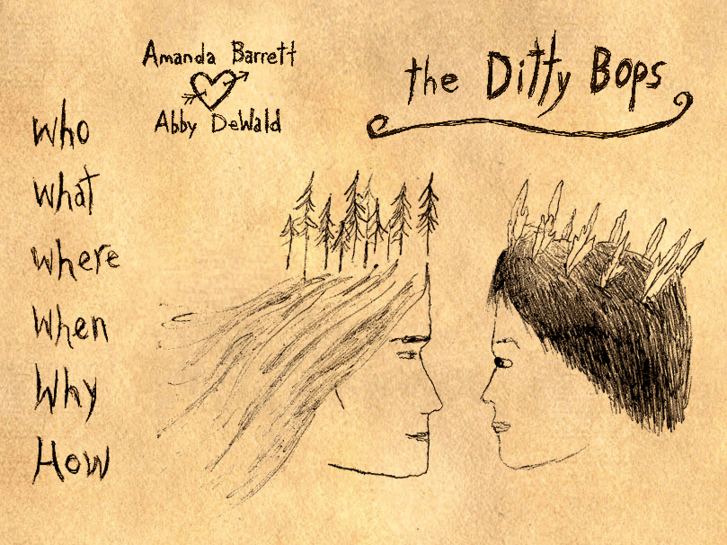 Amanda Barrett
Abby DeWald
the Ditty Bops
Who
What
where
When
Why
How